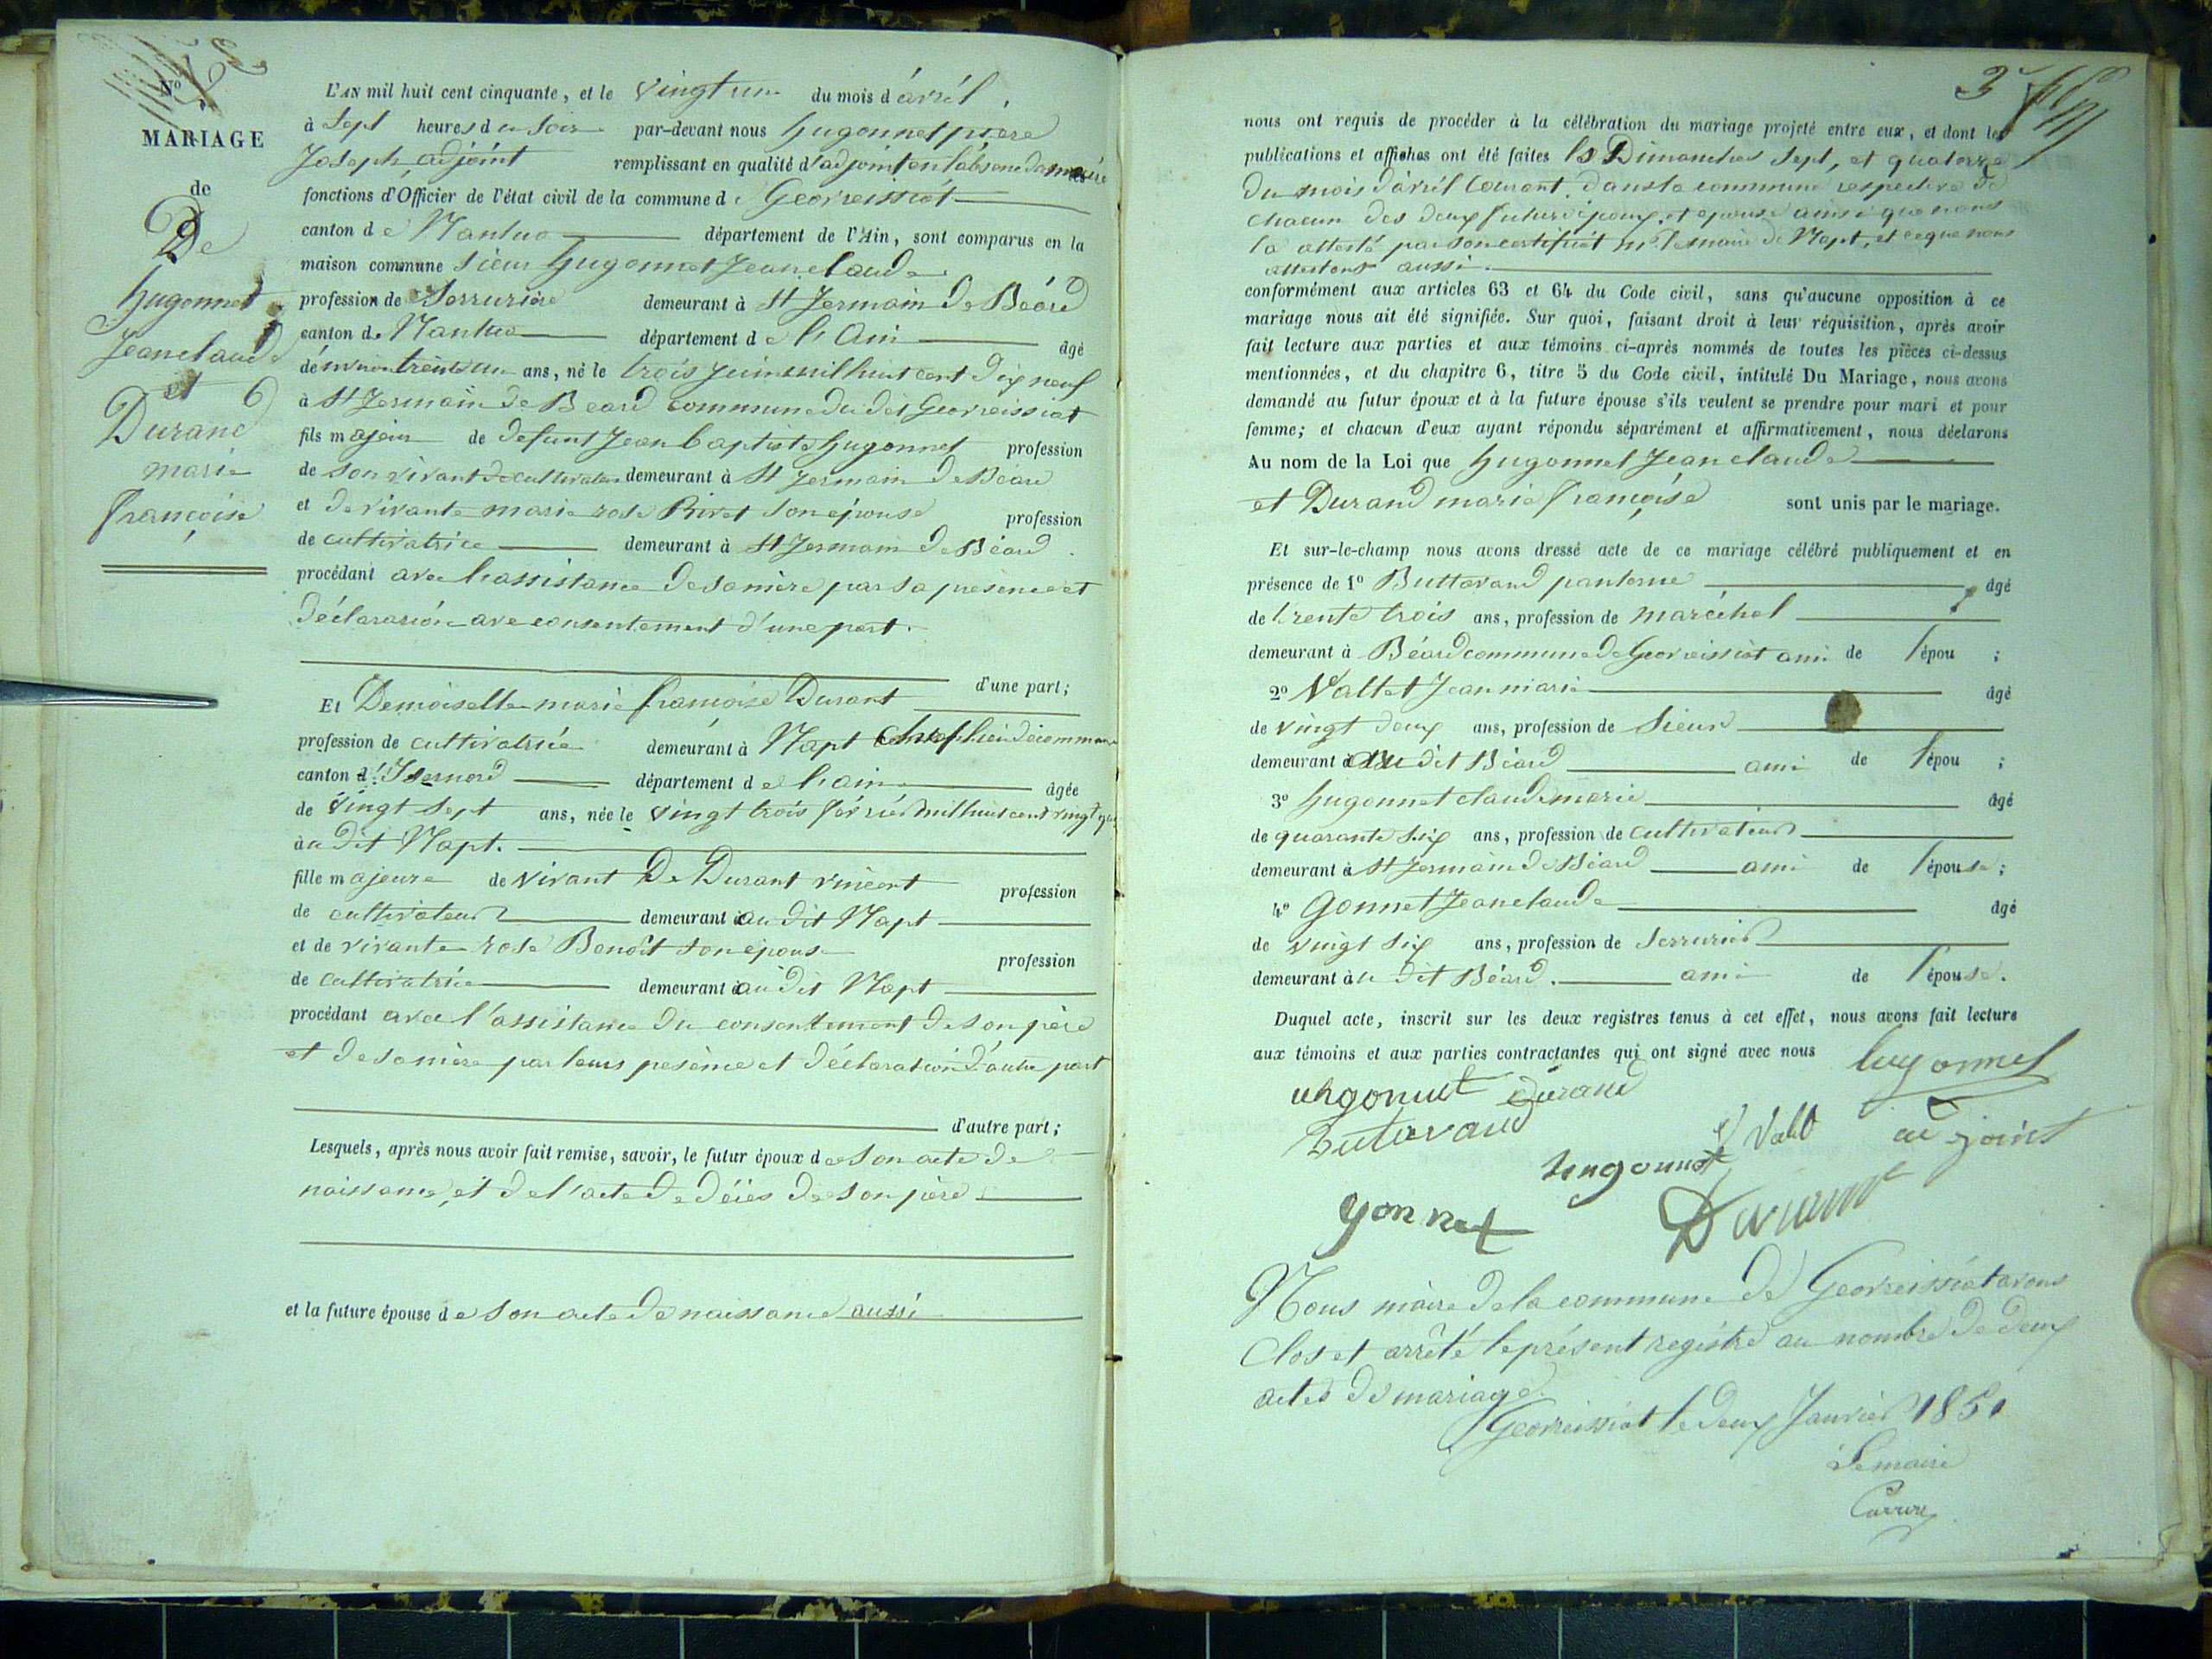 N° 2
MARIAGE
de
De
hugonnet
Jeanclaude
et
Durand
marie
françoise
L'AN mil huit cent cinquante, et le vingt un du mois d'avril,
à Sept heures du Soir par-devant nous hugonnet pierre
Joseph, adjoint remplissant en qualité d'adjoint en l'absence du maire les
fonctions d'Officier de l'état civil de la commune de Geovreissiat
canton de Nantua département de l'Ain, sont comparus en la
maison commune Sieur hugonnet Jeanclaude
profession de Serrurier demeurant à St Jermain De Béard
canton de Nantua département de l'Ain âgé
d'environ trente un ans, né le trois juin mil huit cent dix neuf
à St Jermain de Beard commune du dit Geovreissiat
fils majeur de défunt Jean baptiste hugonnet profession
de son vivant de cultivateur demeurant à St Jermain De Béard
et de vivante marie rose Rivet son épouse profession
de cultivatrice demeurant à St Jermain De Béard
procédant avec l'assistance de sa mère par sa présence et
déclarasion avec consentement d'une part.
d'une part;
Et Demoiselle marie françoise Durant
profession de cultivatrice demeurant à Napt Chef lieu de commune
canton d'Isernord département de l'ain âgée
de vingt sept ans, née le vingt trois février mil huit cent vingt
au dit Napt.
fille majeure de vivant De Durant vincent profession
de cultivateur demeurant au dit Napt
et de vivante rose Benoît son épouse profession
de cultivatrice demeurant au dit Napt
procédant avec l'assistance du consentement de son père
et de sa mère par leurs présence et déclaration d'autre part
d'autre part;
Lesquels, après nous avoir fait remise, savoir, le futur époux de son acte de
naissance, et de l'acte de décès de son père
et la future épouse de son acte de naissance aussi
3
nous ont requis de procéder à la célébration du mariage projeté entre eux, et dont les
publications et affiches ont été faites les Dimanches Sept, et quatorze
du mois d'avril Courant. dans la commune respective de
chacun des deux futurs époux et épouse ainsi que nous
l'a attesté par son certificat mr. le maire de Napt, et ce que nous
attestons aussi.
conformément aux articles 63 et 64 du Code civil, sans qu'aucune opposition à ce
mariage nous ait été signifiée. Sur quoi, faisant droit à leur réquisition, après avoir
fait lecture aux parties et aux témoins ci-après nommés de toutes les pièces ci-dessus
mentionnées, et du chapitre 6, titre 5 du Code civil, intitulé Du Mariage, nous avons
demandé au futur époux et à la future épouse s'ils veulent se prendre pour mari et pour
femme; et chacun d'eux ayant répondu séparément et affirmativement, nous déclarons
Au nom de la Loi que hugonnet Jeanclaude
et Durand marie françoise sont unis par le mariage.
Et sur-le-champ nous avons dressé acte de ce mariage célébré publiquement et en
présence de 1° Buttavand âgé
de trente trois ans, profession de maréchal
demeurant à Béard commune de Geovreissiat ami de l'épou ;
2° Vallet Jeanmarie âgé
de vingt deux ans, profession de Sieur
demeurant au dit Béard ami de l'épou ;
3° hugonnet claudemarie âgé
de quarante six ans, profession de cultivateur
demeurant à St Jermain de Béard ami de l'épouse;
4° Gonnet Jeanclaude âgé
de vingt six ans, profession de Serrurier
demeurant au dit Béard. ami de l'épouse.
Duquel acte, inscrit sur les deux registres tenus à cet effet, nous avons fait lecture
aux témoins et aux parties contractantes qui ont signé avec nous hugonnet
uhgonnet Durand
Butavand Valet adjoint
hugonnet
gonnet Durant
Nous maire de la commune de Geovreissiat avons
Clos et arrêté le présent registre au nombre de deux
actes de mariage.
Geovreissiat le deux Janvier 1851
Le maire